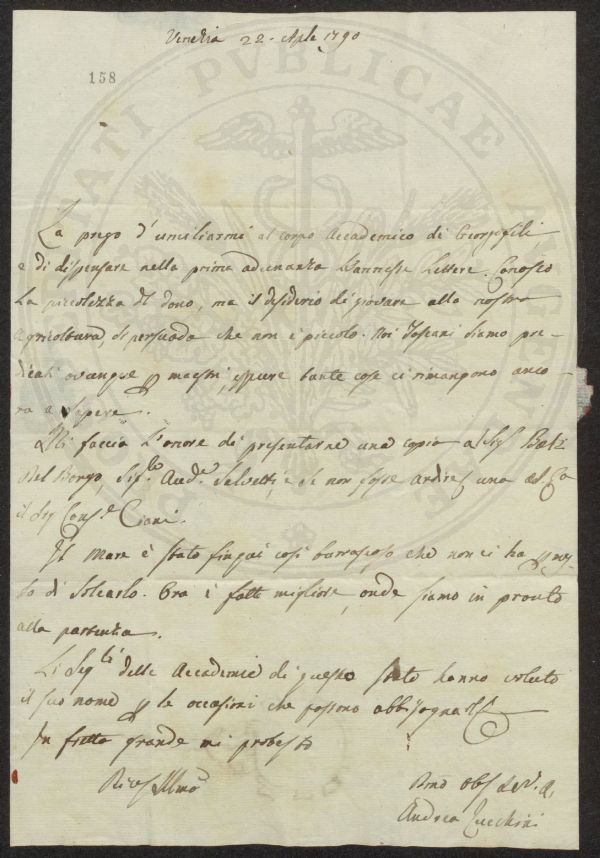 Venezia 22. Aple 1790
158
La prego d'umiliarmi al corpo Accademico di Georgofili,
e di dispensare nella prima adunanza l'annesse Lettere. Conosco
la piccolezza del dono, ma il desiderio di giovare alla nostra
agricoltura, si persuada che non è piccolo. Noi Toscani siamo pre-
dicati ovunque p maestri, eppure tante cose ci rimangono anco-
ra a sapere.
Mi faccia l'onore di presentarne una copia al Sig
Del Borgo, Sig.re Aud.e Salvetti, e se non fosse ardire una al
il Sig Cons.e Ciani.
Il Mare è stato finqui così burrascoso che non ci ha pmes-
so di solcarlo. Ora è fatto migliore, onde siamo in pronto
alla partenza.
Li Seg.ti delle Accademie di questo stato hanno voluto
il suo nome p le occasioni che possono abbisognarli
In fretta grande mi protesto
Andrea Zucchini
PUBLICAE